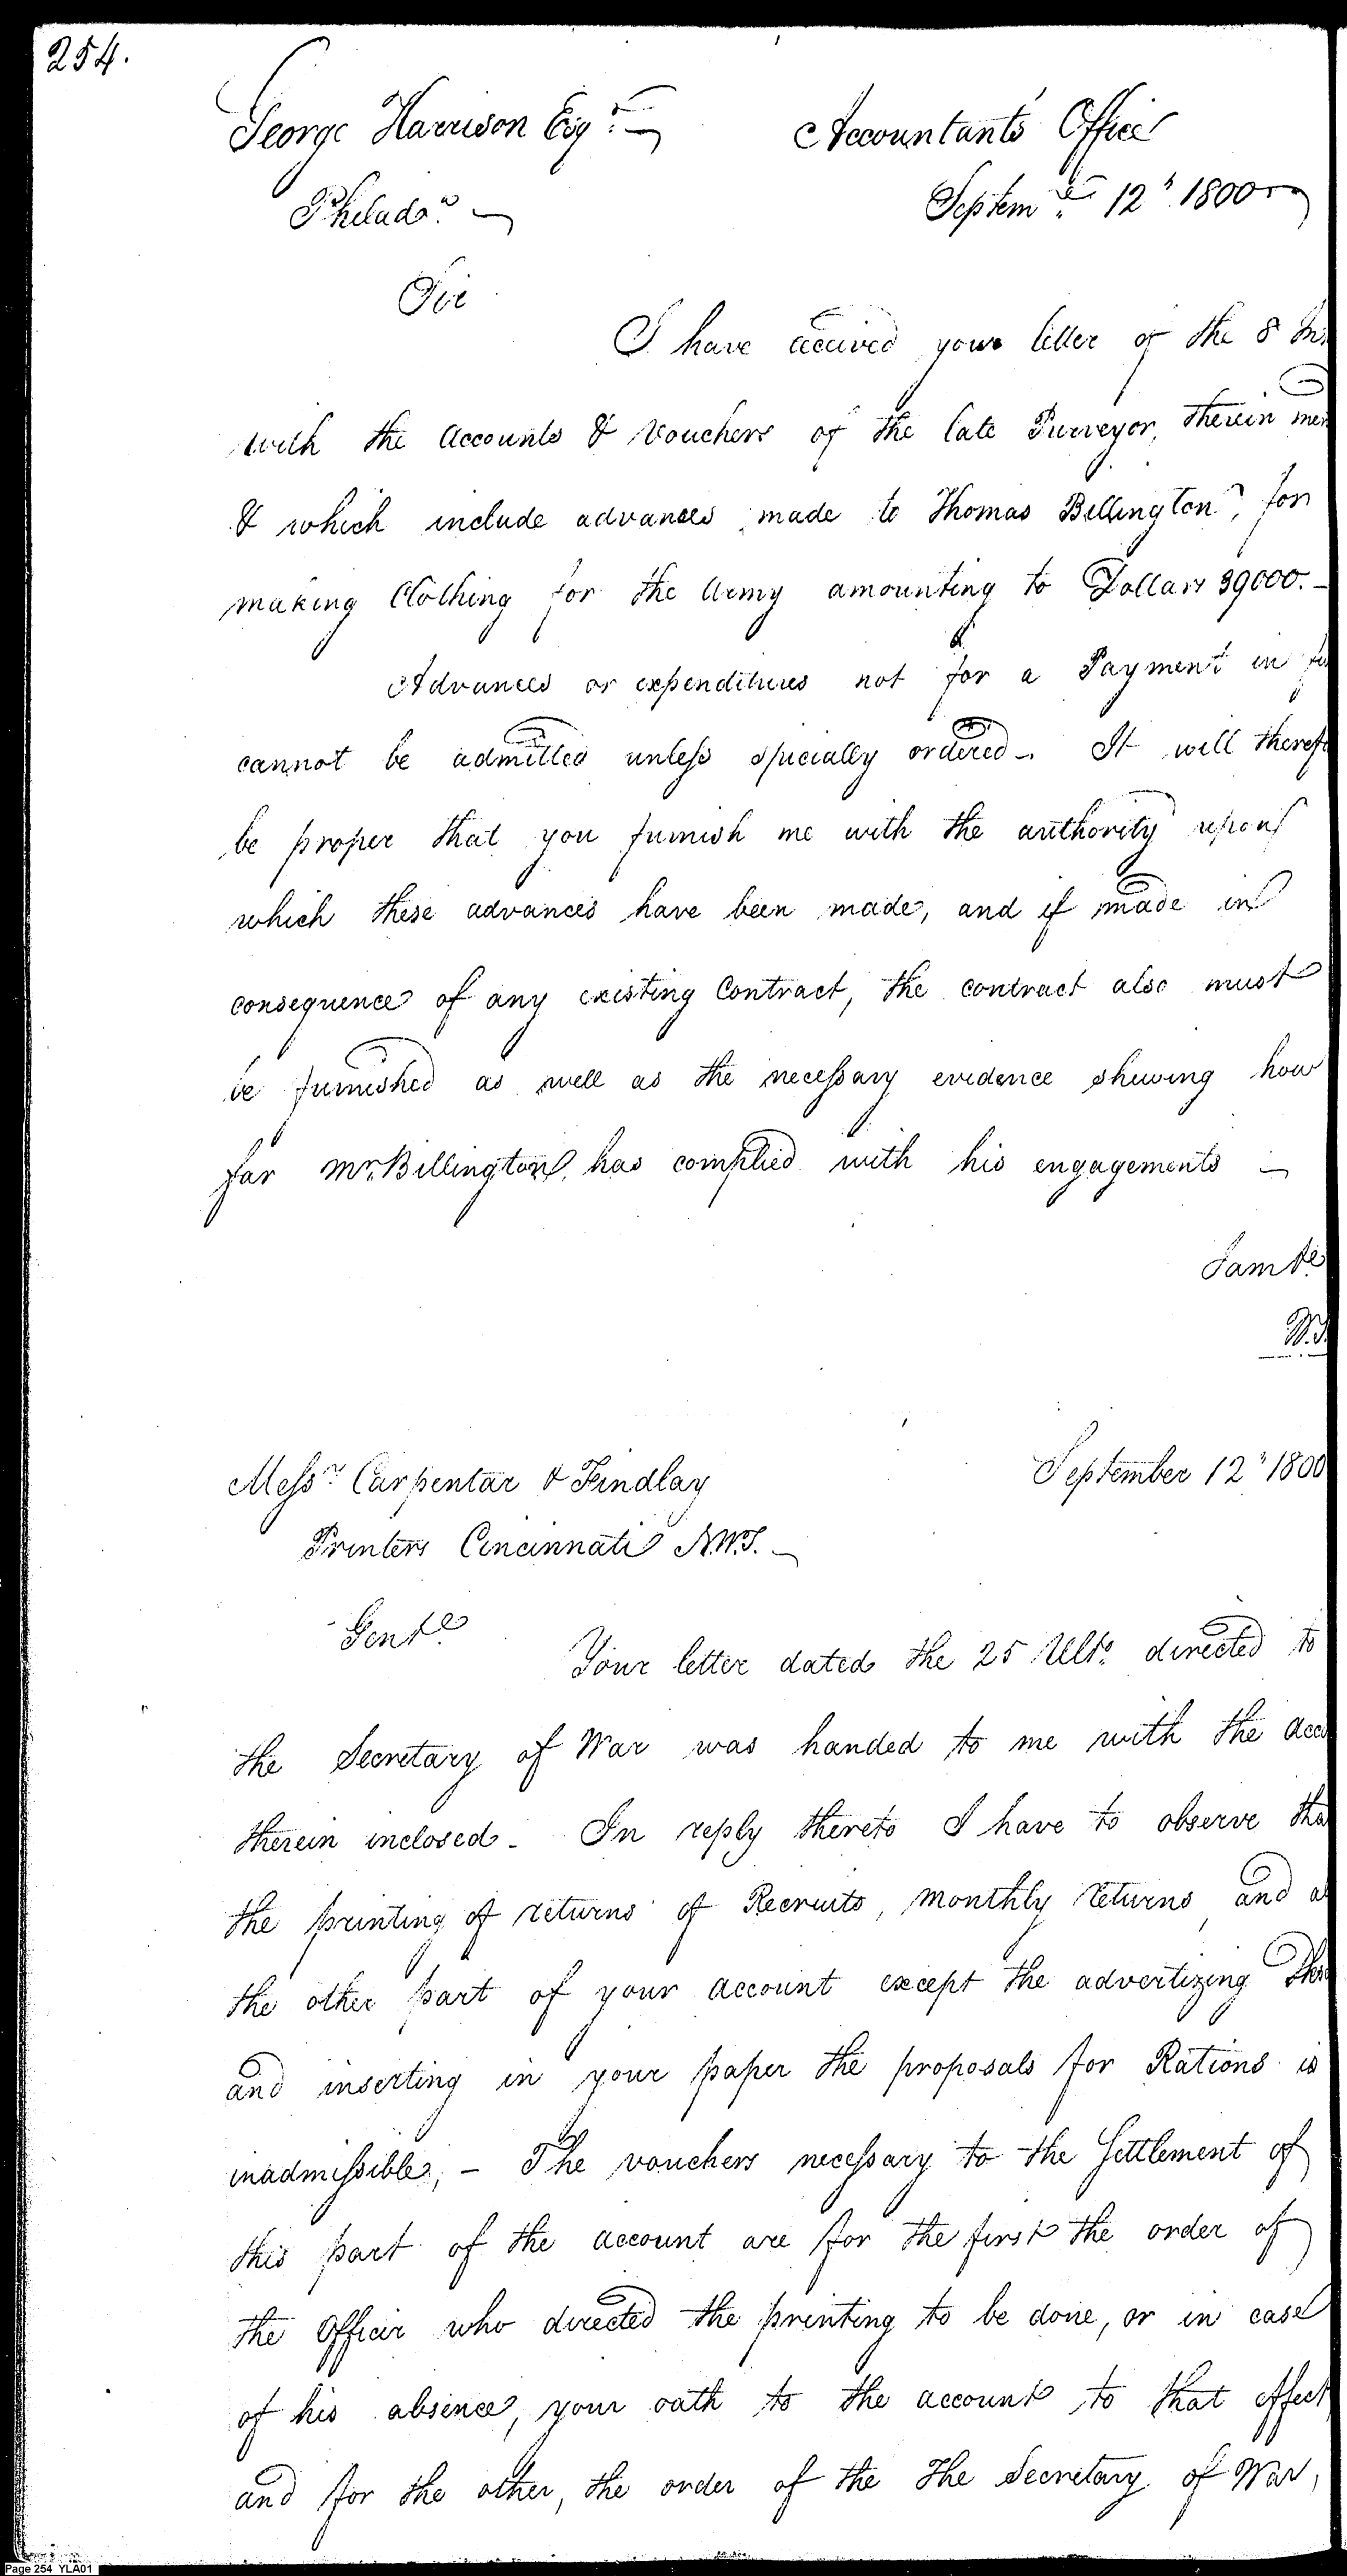 254.
George Harrison Esqr.
Accountants Office
Philada.
Septemr. 12h 1800
Sir
I have received your letter of the 8 Ins
with the Accounts & Vouchers of the late Purveyor, therein men
& which include advances made to Thomas Billington, for
making Clothing for the Army amounting to Dollars 39000.—
Advances or expenditures not for a Payment in fu
cannot be admitted unless specially ordered —. It will therefo
be proper that you furnish me with the authority upon
which these advances have been made, and if made in
consequence of any existing Contract, the contract also must
be furnished as well as the necessary evidence shewing how
far Mr. Billington, has complied with his engagements —
I am &c
W.S.
Messrs. Carpentar & Findlay
September 12h 1800
Printers Cincinnati N.W.T. —
Gentle.
Your letter dated the 25 Ulto. directed to
the Secretary of War was handed to me with the acco
therein inclosed — In reply thereto I have to observe tha
the printing of returns of Recruits, monthly returns, and a
the other part of your account except the advertizing
and inserting in your paper the proposals for Rations is
inadmissible, — The vouchers necessary to the Settlement of
this part of the account are for the first the order of
the Officer who directed the printing to be done, or in case
of his absence, your oath to the account to that effect
and for the other, the order of the The Secretary of War,
Page 254 YLA01